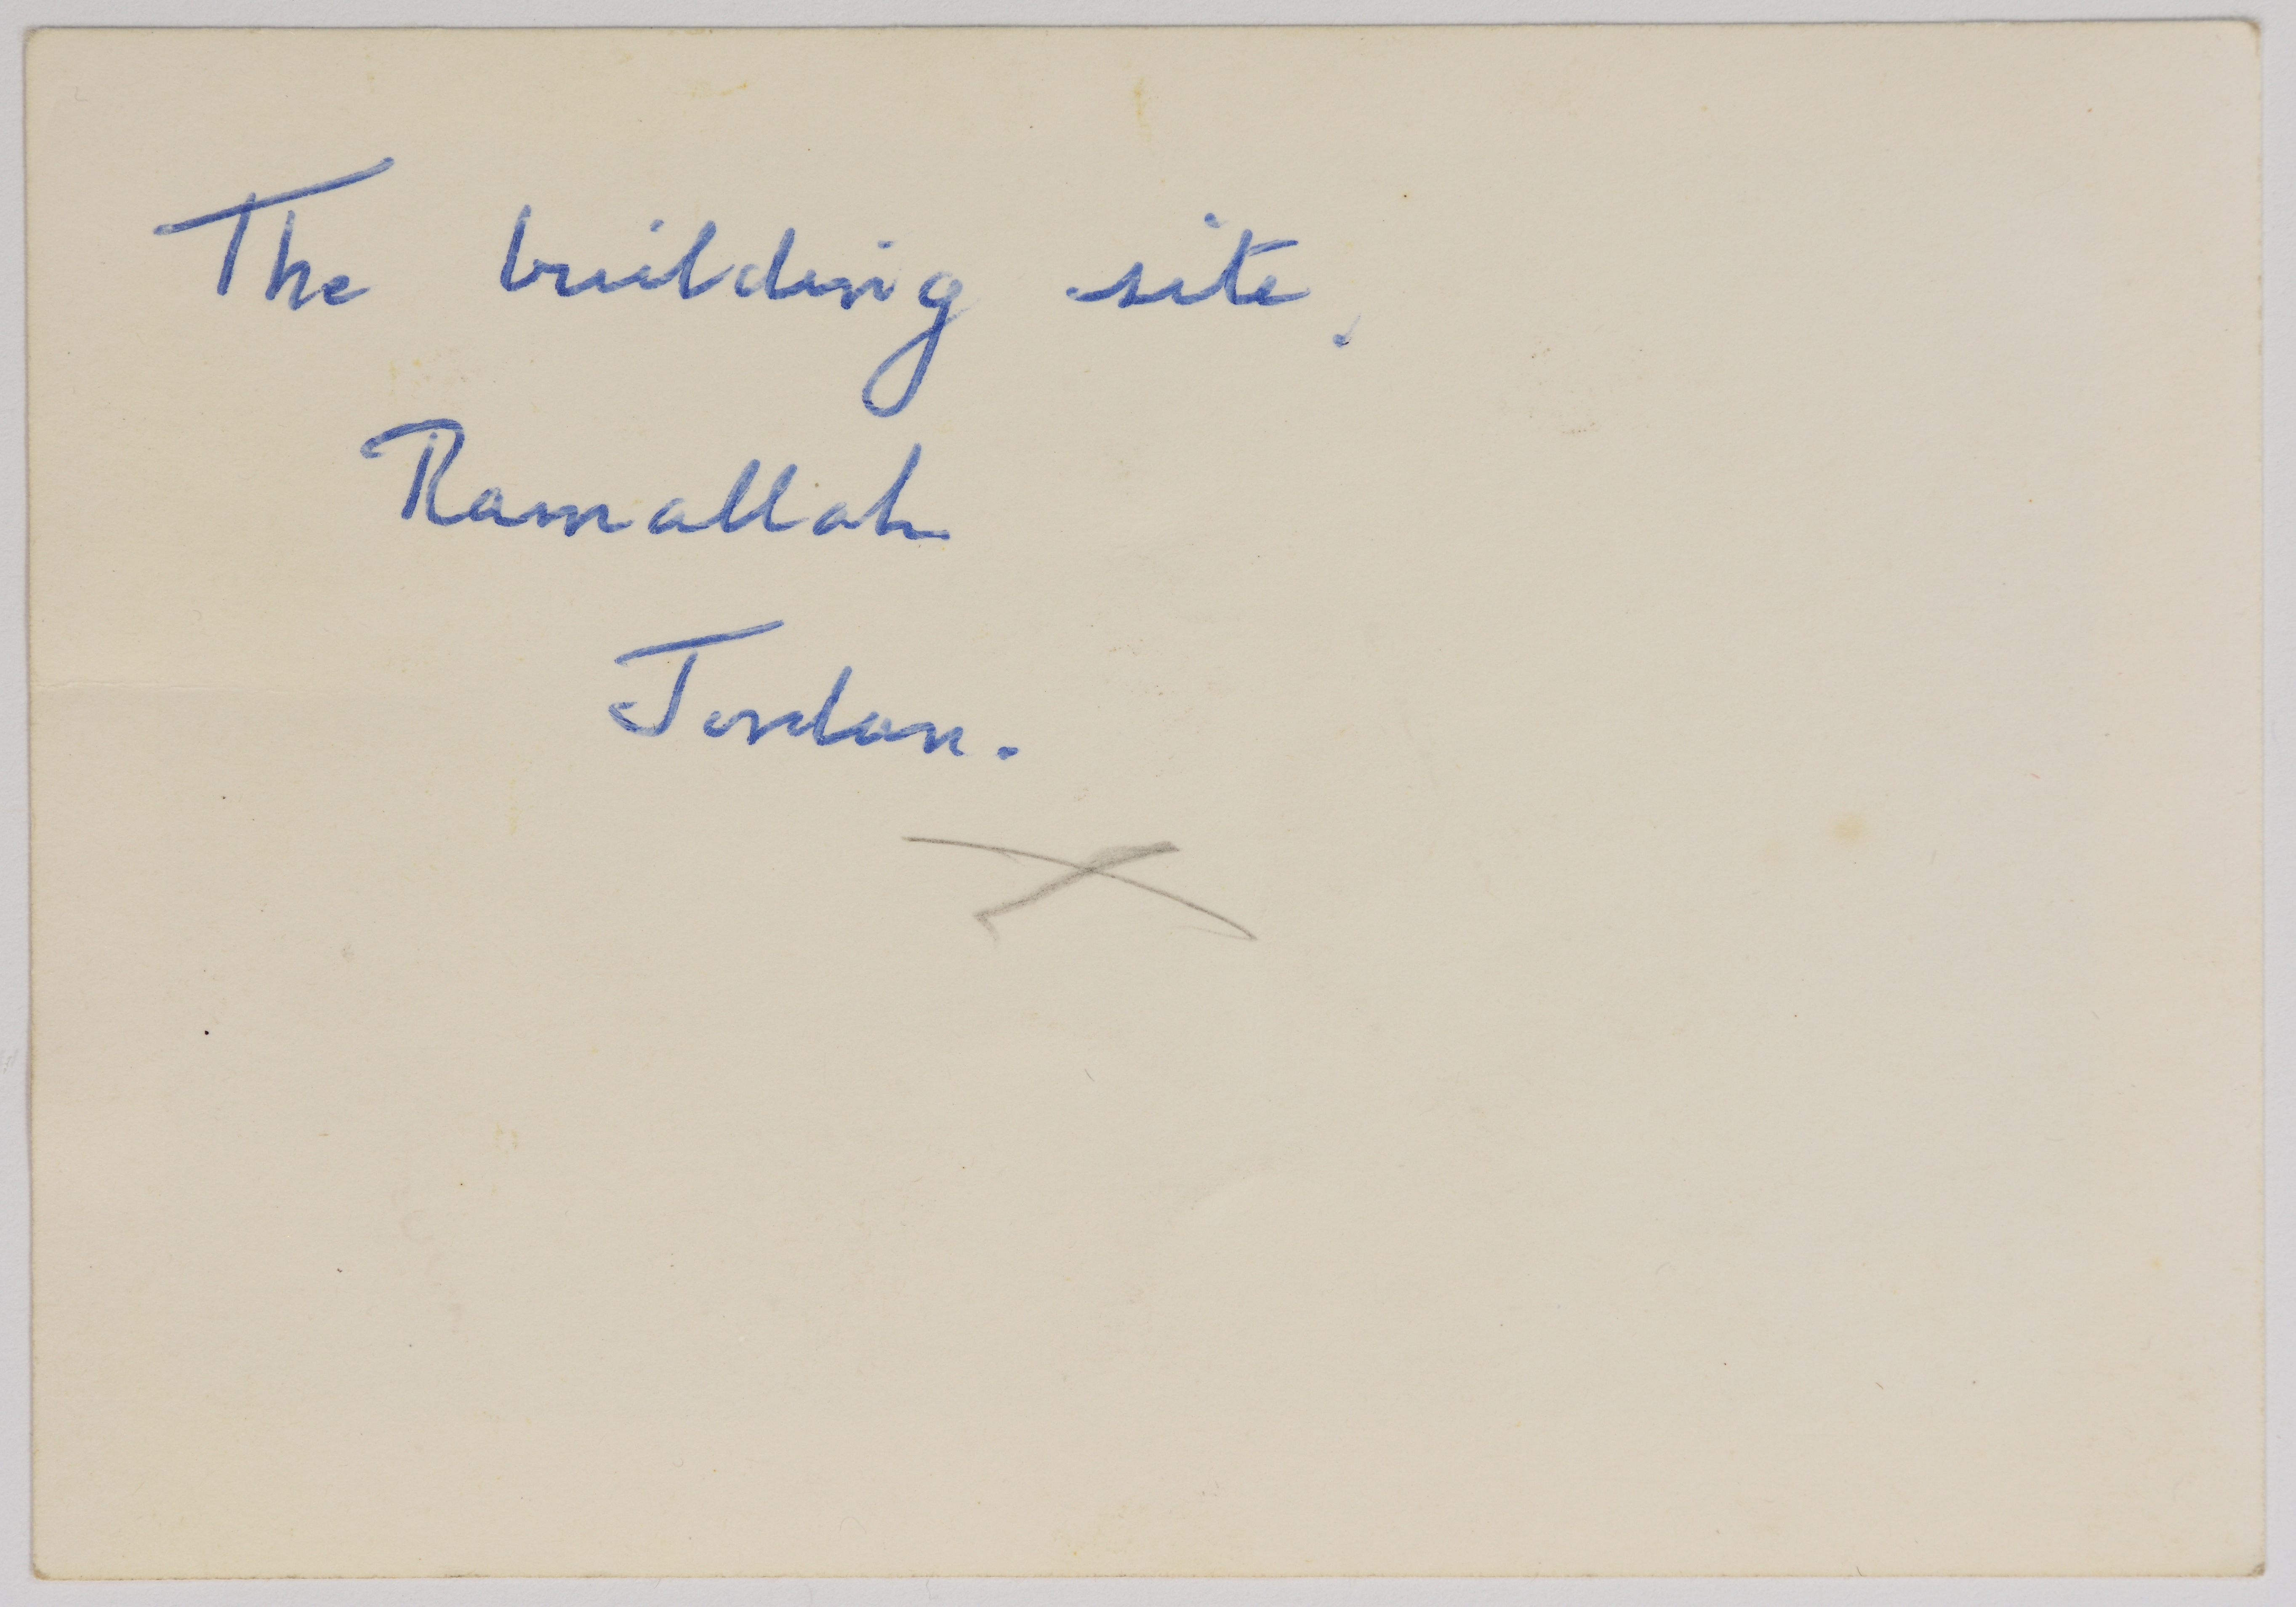 The building site,
Ramallah
Jordan.